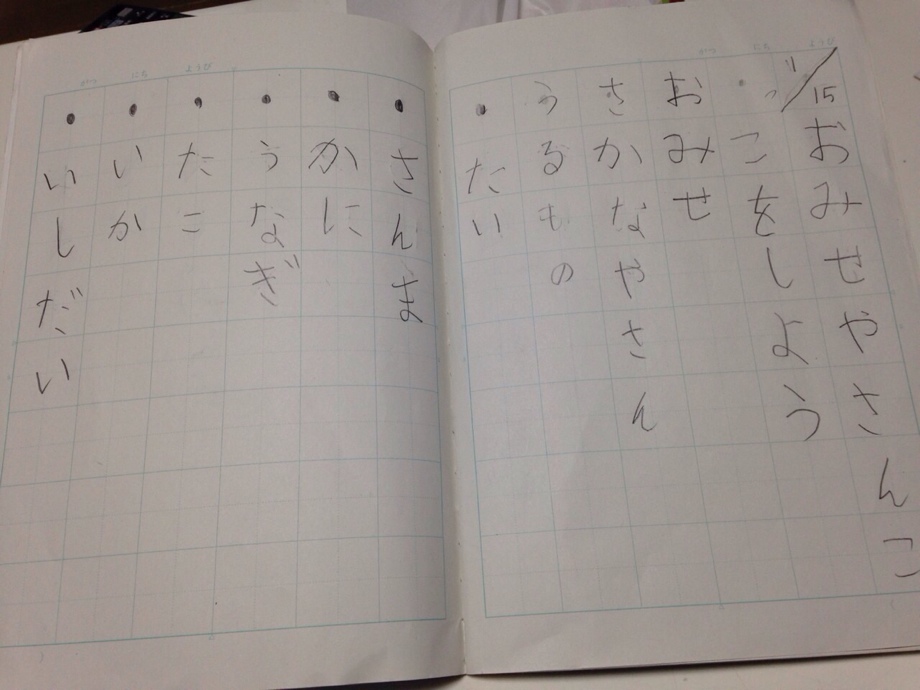 がつ にち ようび
11/15
おみせやさんこ
こをしよう
おみせ
さかなやさん
うるもの
・たい
がつ にち ようび
・さんま
・かに
・うなぎ
・たこ
・いか
・いしだい